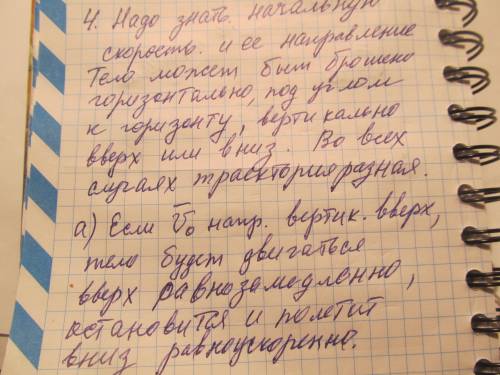 4. Надо знать начальную
скорость. и ее направление
Тело может быт брошено
горизонтально, под углом
к горизонту, вертикально
вверх или вниз. Во всех
случаях траектория разная.
а) Если V̅₀ напр. вертик. вверх,
тело будет двигаться
вверх равнозамедленно,
остановится и полетит
вниз равноускоренно.